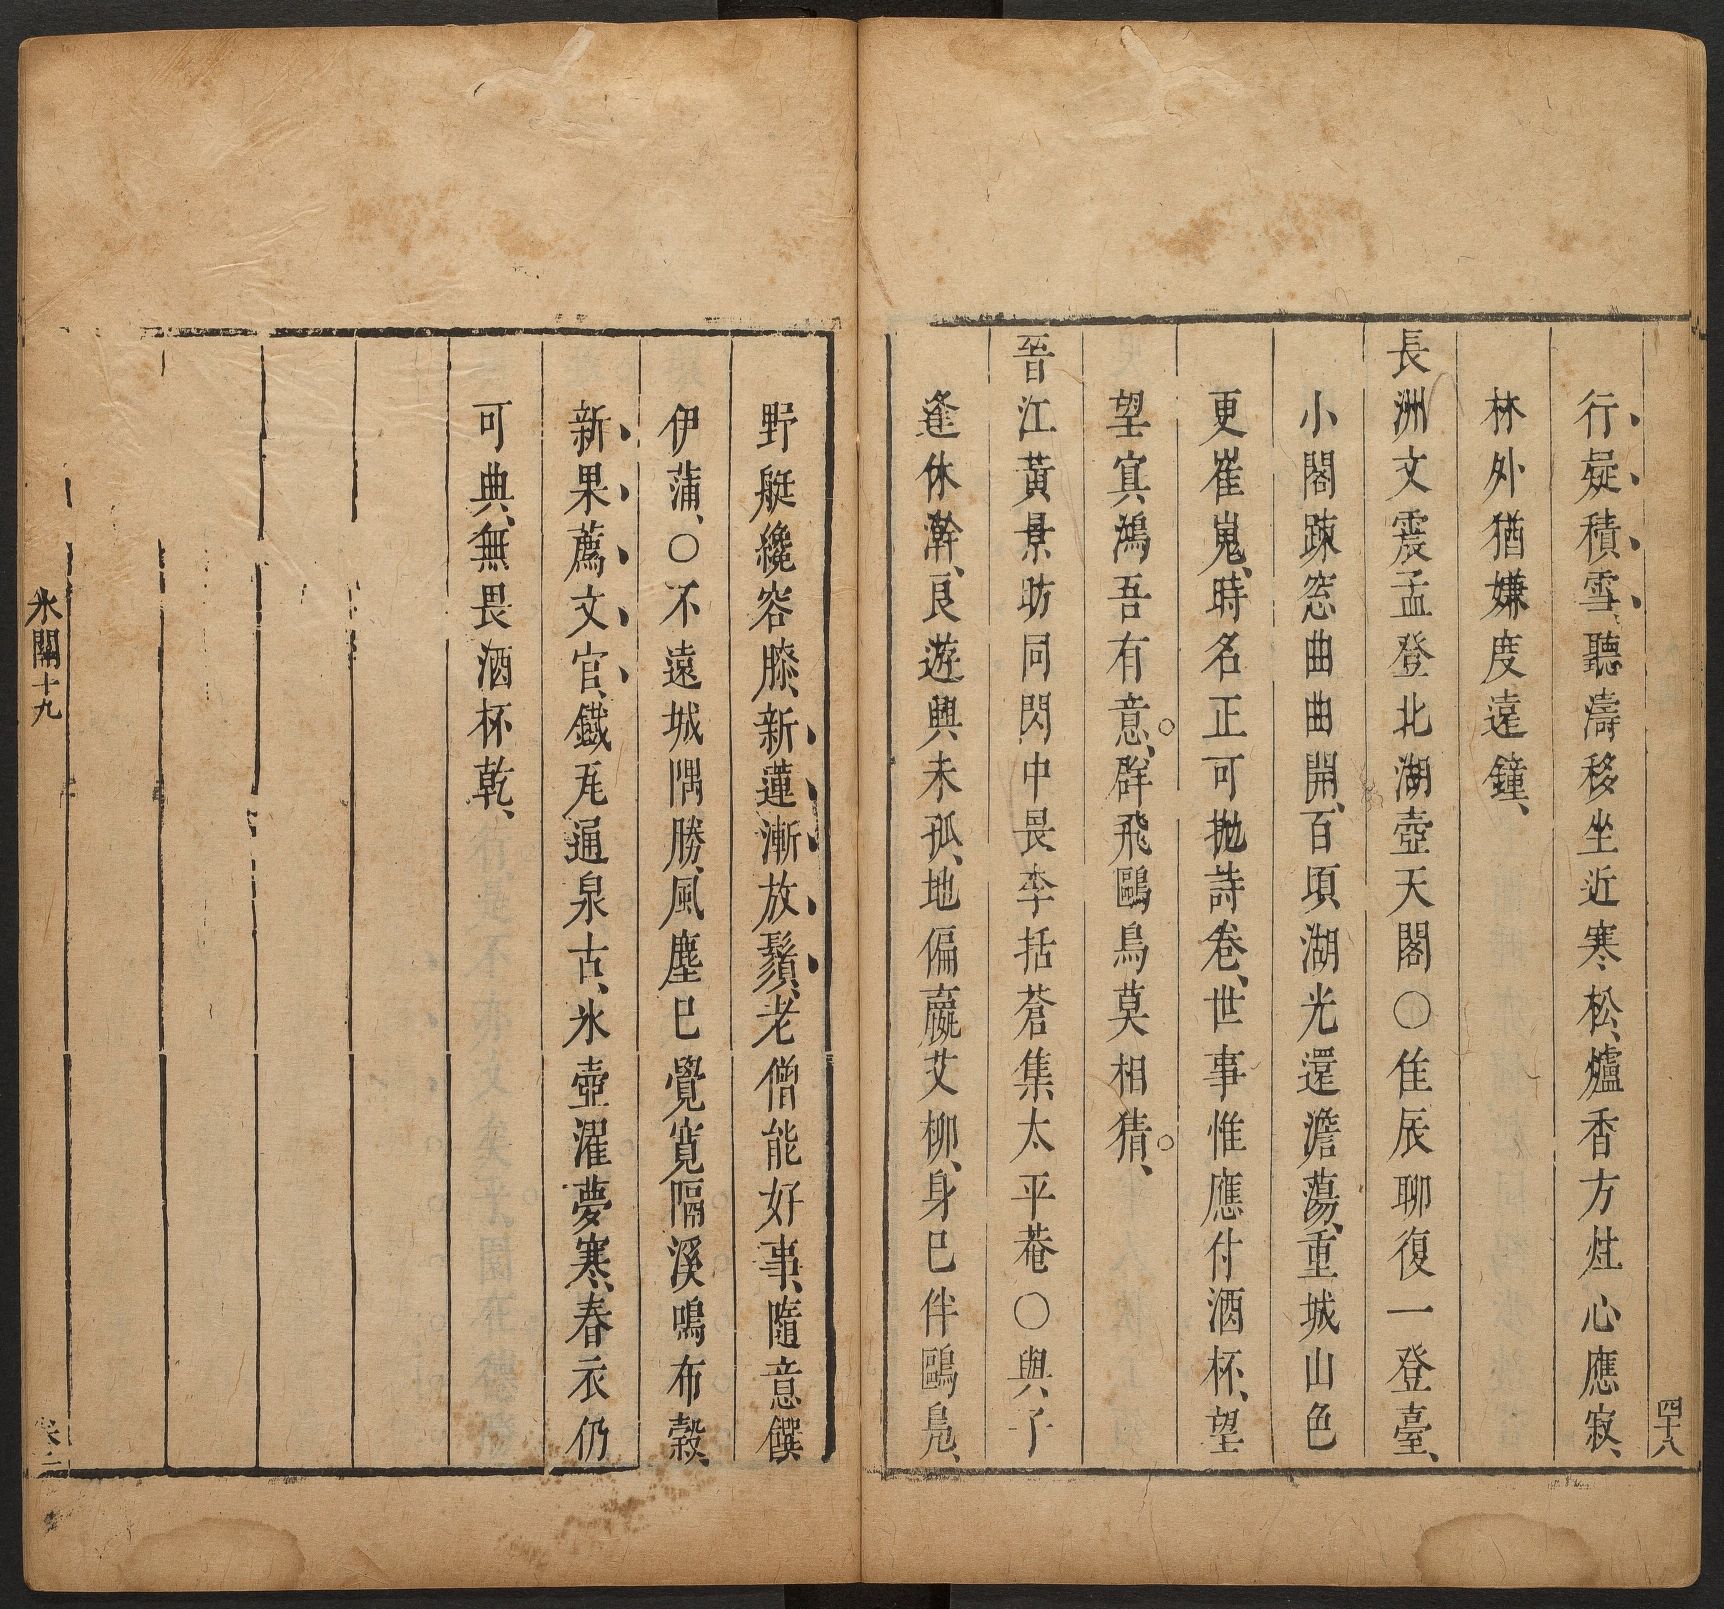 四十八
行疑積雪、聽濤移坐近寒松、爐香方炷心應寂、
林外猶嫌度遠鐘、
長洲文震孟登北湖壺天閣○佳辰聊復一登臺、
小閣疎窓曲曲開、百頃湖光還澹蕩、重城山色
更崔嵬、時名正可拋詩卷、世事惟應付酒杯、望
望寘鴻吾有意、群飛鷗鳥莫相猜、
晉江黃景昉同閃中畏李括蒼集太平菴○與子
逢休澣、良遊興未孤、地偏贏艾柳、身巳伴鷗鳧、
野艇纔容膝、新蓮漸放鬚、老僧能好事、隨意饌
伊蒲、○不遠城隅勝、風塵巳覺寬、隔溪鳴布穀、
新果薦文官、鐵瓦通泉古、氷壺濯夢寒、春衣仍
可典、無畏酒杯乾、
氷關十九